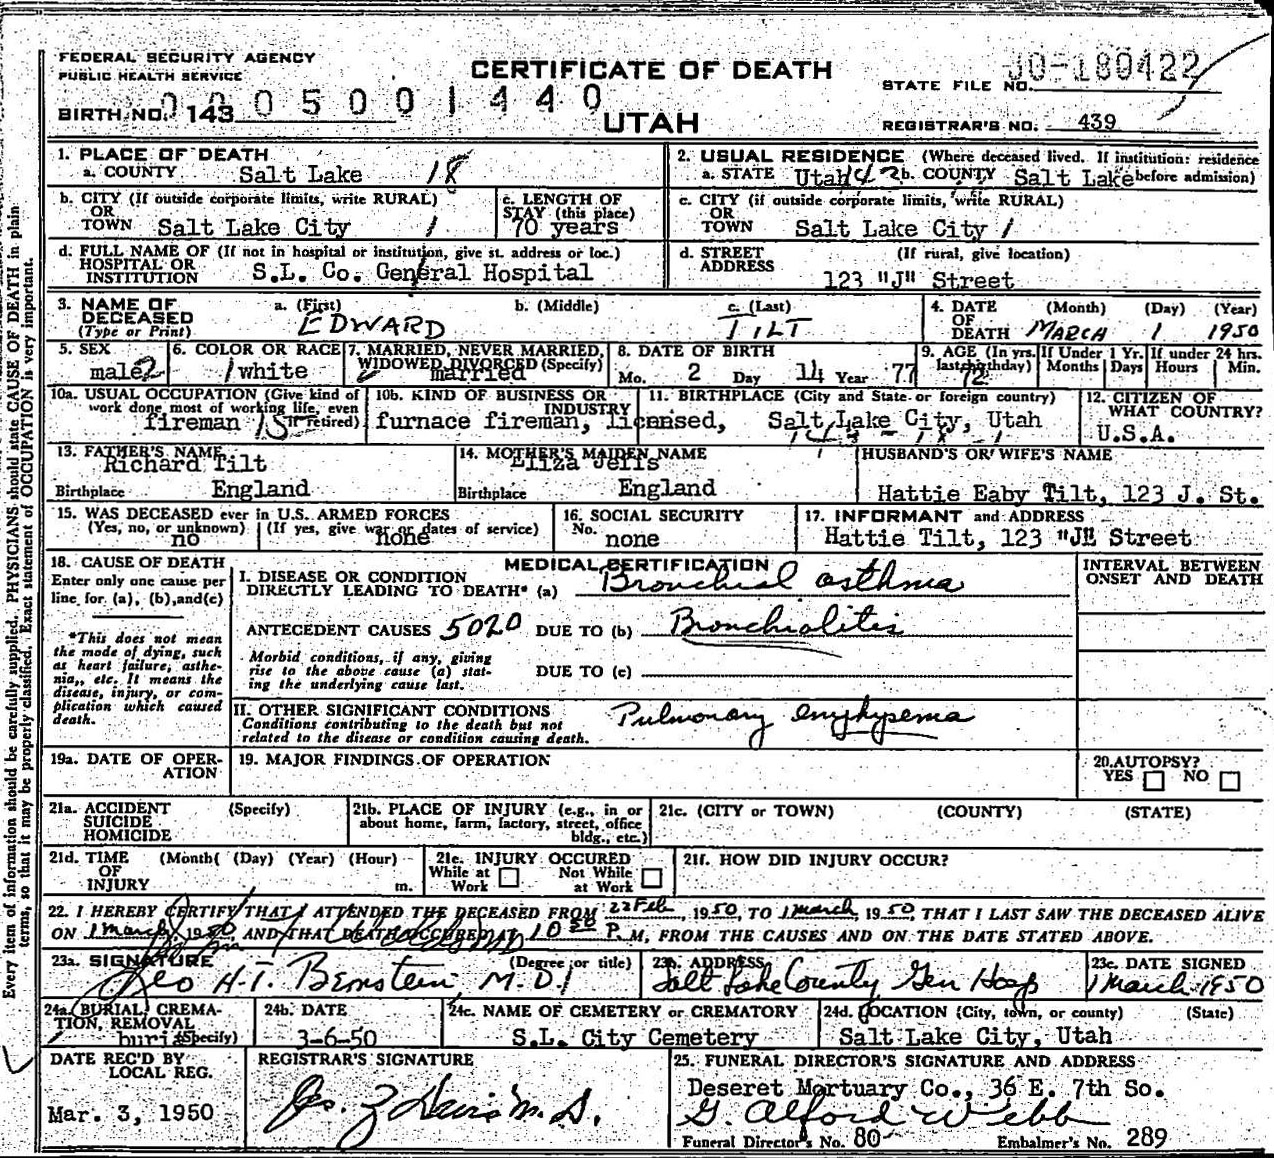 FEDERAL SECURITY AGENCY
PUBLIC HEALTH SERVICE
CERTIFICATE OF DEATH
UTAH
STATE FILE NO. JO-180422
BIRTH NO. 143 0005001440
REGISTRAR'S NO. 439
1. PLACE OF DEATH
a. COUNTY Salt Lake 18
2. USUAL RESIDENCE (Where deceased lived. If institution: residence before admission)
a. STATE Utah 142 b. COUNTY Salt Lake
b. CITY (If outside corporate limits, write RURAL) OR TOWN Salt Lake City 1
c. LENGTH OF STAY (this place) 70 years
c. CITY (if outside corporate limits, write RURAL) OR TOWN Salt Lake City 1
d. FULL NAME OF (If not in hospital or institution, give st. address or loc.) HOSPITAL OR INSTITUTION S.L. Co. General Hospital
d. STREET ADDRESS (If rural, give location) 123 "J" Street
3. NAME OF DECEASED (Type or Print) a. (First) EDWARD b. (Middle) c. (Last) TILT
4. DATE OF DEATH (Month) MARCH (Day) 1 (Year) 1950
5. SEX male 2
6. COLOR OR RACE 1 white
7. MARRIED, NEVER MARRIED, WIDOWED DIVORCED (Specify) married
8. DATE OF BIRTH Mo. 2 Day 14 Year 77
9. AGE (In yrs. last birthday) 72 If Under 1 Yr. Months Days If under 24 hrs. Hours Min.
10a. USUAL OCCUPATION (Give kind of work done most of working life, even if retired) fireman 15
10b. KIND OF BUSINESS OR INDUSTRY furnace fireman, licensed,
11. BIRTHPLACE (City and State or foreign country) Salt Lake City, Utah
143-18-1
12. CITIZEN OF WHAT COUNTRY? U.S.A.
13. FATHER'S NAME Richard Tilt
Birthplace England
14. MOTHER'S MAIDEN NAME Eliza Jeffs
Birthplace England
HUSBAND'S OR WIFE'S NAME
Hattie Eaby Tilt, 123 J. St.
15. WAS DECEASED ever in U.S. ARMED FORCES
(Yes, no, or unknown) no (If yes, give war or dates of service) none
16. SOCIAL SECURITY No. none
17. INFORMANT and ADDRESS
Hattie Tilt, 123 "J" Street
18. CAUSE OF DEATH
Enter only one cause per line for (a), (b), and (c)
*This does not mean the mode of dying, such as heart failure, asthenia,, etc. It means the disease, injury, or complication which caused death.
MEDICAL CERTIFICATION
I. DISEASE OR CONDITION DIRECTLY LEADING TO DEATH* (a) Bronchial asthma
ANTECEDENT CAUSES 5020 DUE TO (b) Bronchiolitis
Morbid conditions, if any, giving rise to the above cause (a) stating the underlying cause last. DUE TO (c)
II. OTHER SIGNIFICANT CONDITIONS Pulmonary emphysema
Conditions contributing to the death but not related to the disease or condition causing death.
INTERVAL BETWEEN ONSET AND DEATH
19a. DATE OF OPERATION
19. MAJOR FINDINGS OF OPERATION
20. AUTOPSY? YES NO
21a. ACCIDENT SUICIDE HOMICIDE (Specify)
21b. PLACE OF INJURY (e.g., in or about home, farm, factory, street, office bldg., etc.)
21c. (CITY or TOWN) (COUNTY) (STATE)
21d. TIME OF INJURY (Month( (Day) (Year) (Hour) m.
21e. INJURY OCCURED While at Work Not While at Work
21f. HOW DID INJURY OCCUR?
22. I HEREBY CERTIFY THAT I ATTENDED THE DECEASED FROM 22 Feb, 1950, TO 1 March, 1950, THAT I LAST SAW THE DECEASED ALIVE
ON 1 March 1950 AND THAT DEATH OCCURRED AT 10 50 P. M, FROM THE CAUSES AND ON THE DATE STATED ABOVE.
23a. SIGNATURE (Degree or title) Geo H.T. Bernstein, M.D.
23b. ADDRESS Salt Lake County Gen Hosp
23c. DATE SIGNED 1 March 1950
24a. BURIAL, CREMATION, REMOVAL (Specify) burial
24b. DATE 3-6-50
24c. NAME OF CEMETERY or CREMATORY S.L. City Cemetery
24d. LOCATION (City, town, or county) (State) Salt Lake City, Utah
DATE REC'D BY LOCAL REG. Mar. 3, 1950
REGISTRAR'S SIGNATURE M.D.
25. FUNERAL DIRECTOR'S SIGNATURE AND ADDRESS
Deseret Mortuary Co., 36 E. 7th So.
G. Alford Webb
Funeral Director's No. 80 Embalmer's No. 289
Every item of information should be carefully supplied. PHYSICIANS should state CAUSE OF DEATH in plain
terms, so that it may be properly classified. Exact statement of OCCUPATION is very important.